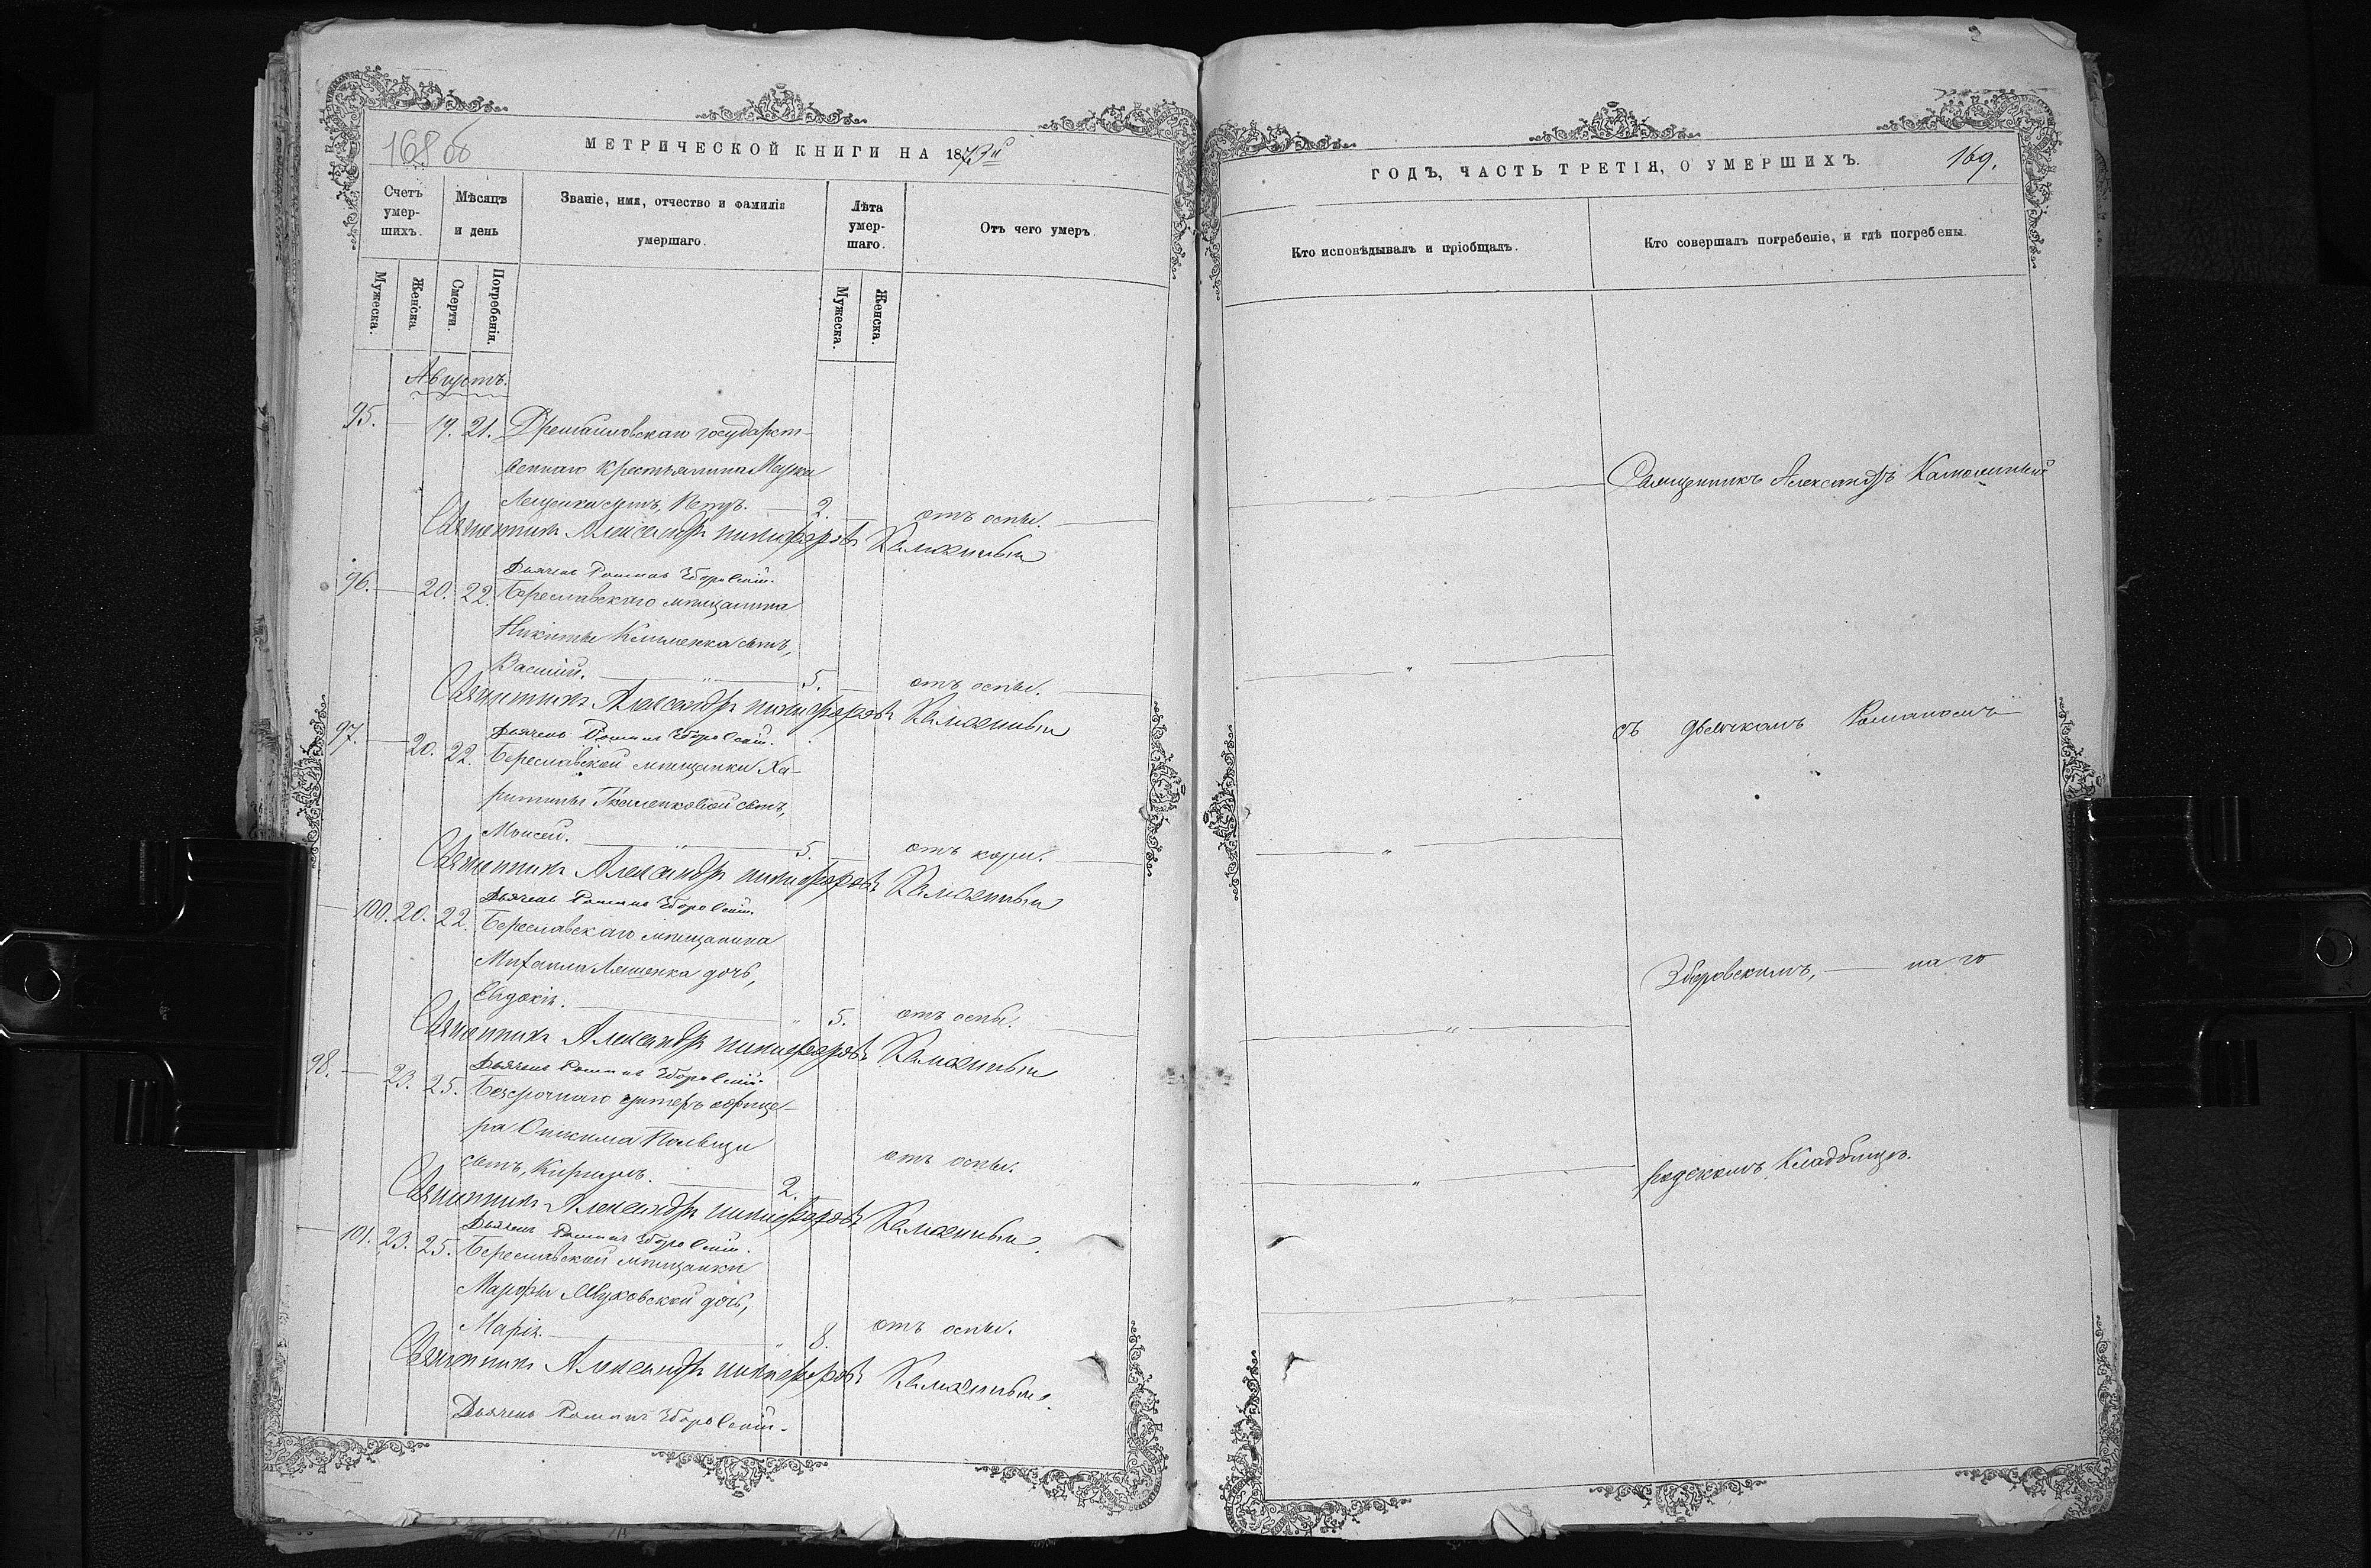 168 об
МЕТРИЧЕСКОЙ КНИГИ НА 1873й
Счетъ умер-шихъ.
Мѣсяцъ и день
Званіе, имя, отчество и фамилія умершаго.
Лѣта умер-шаго.
Отъ чего умеръ.
Мужеска.
Женска
Смерти.
Погребенія.
Мужеска.
Женска.
Августъ.
95. 19. 21. государст-
веннаго крестьянина
сынъ, Петръ. 2. отъ оспы.
Священникъ Александръ Никифоровъ
Дьячекъ Романъ Зборовскій.
96. 20. 22. Береславскаго мѣщанина
Никиты Клименка сынъ,
Василій. 5. отъ оспы.
Священникъ Александръ Никифоровъ
Дьячекъ Романъ Зборовскій.
97. 20. 22. Береславской мѣщанки Ха-
ритины Ткаченковой сынъ,
Моисей. 5. отъ кори.
Священникъ Александръ Никифоровъ
Дьячекъ Романъ Зборовскій.
100. 20. 22. Береславскаго мѣщанина
Михаила Ляшенка дочь,
Евдокія. 5. отъ оспы.
Священникъ Александръ Никифоровъ
Дьячекъ Романъ Зборовскій.
98. 23. 25. Безсрочнаго унтеръ офице-
ра
сынъ, Кириллъ. 2. отъ оспы.
Священникъ Александръ Никифоровъ
Дьячекъ Романъ Зборовскій.
101. 23. 25. Береславской мѣщанки
Марфы дочь,
Марія. 8. отъ оспы.
Священникъ Александръ Никифоровъ
Дьячекъ Романъ Зборовскій.
ГОДЪ, ЧАСТЬ ТРЕТІЯ, О УМЕРШИХЪ.
169.
Кто исповѣдывалъ и пріобщалъ.
Кто совершалъ погребеніе, и гдѣ погребены.
Священникъ Александръ
съ дьячкомъ Романомъ
Зборовскимъ, на го
родскомъ Кладбищѣ.